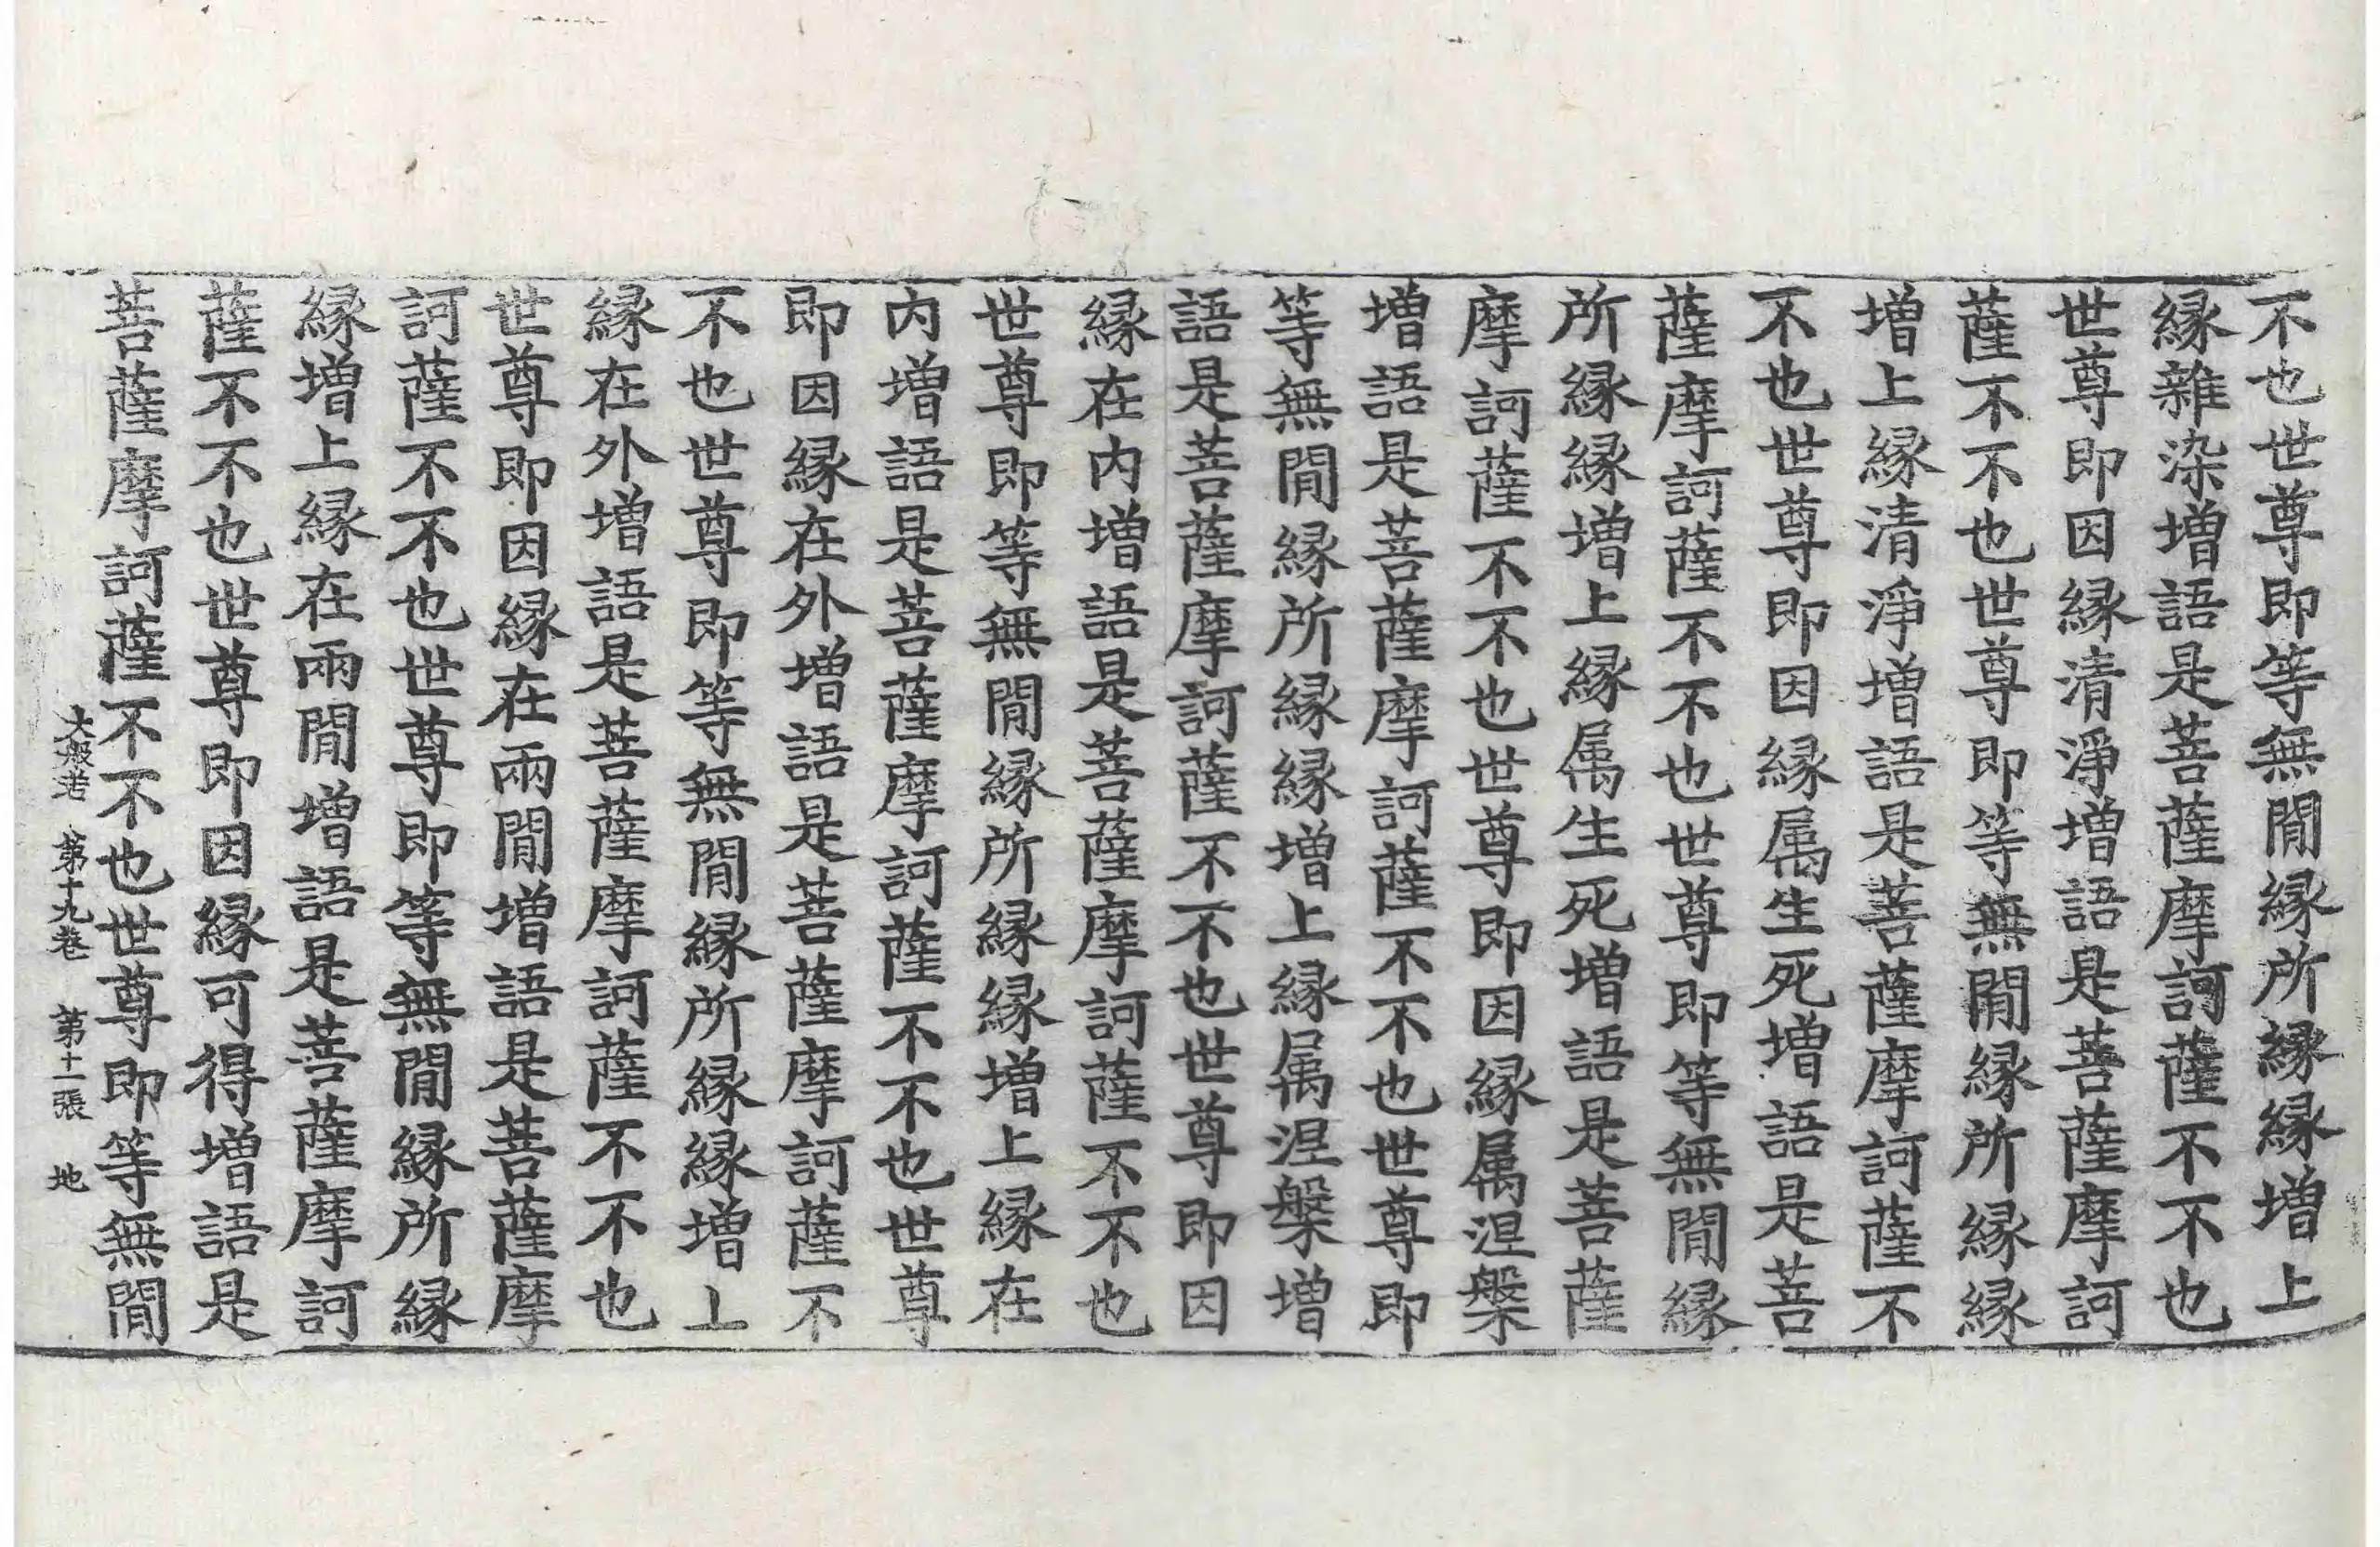 不也世尊即等無間縁所縁縁增上
縁雜染增語是菩薩摩訶薩不不也
世尊即因縁清淨增語是菩薩摩訶
薩不不也世尊即等無間縁所縁縁
增上縁清淨增語是菩薩摩訶薩不
不也世尊即因縁属生死增語是菩
薩摩訶薩不不也世尊即等無間縁
所縁縁增上縁属生死增語是菩薩
摩訶薩不不也世尊即因縁属涅槃
增語是菩薩摩訶薩不不也世尊即
等無間縁所縁縁增上縁属涅槃增
語是菩薩摩訶薩不不也世尊即因
縁在内增語是菩薩摩訶薩不不也
世尊即等無間縁所縁縁增上縁在
内增語是菩薩摩訶薩不不也世尊
即因縁在外增語是菩薩摩訶薩不
不也世尊即等無間縁所縁縁增上
縁在外增語是菩薩摩訶薩不不也
世尊即因縁在兩間增語是菩薩摩
訶薩不不也世尊即等無間縁所縁
縁增上縁在兩間增語是菩薩摩訶
薩不不也世尊即因縁可得增語是
菩薩摩訶薩不不也世尊即等無間
大般若 第十九卷 第十一張 地